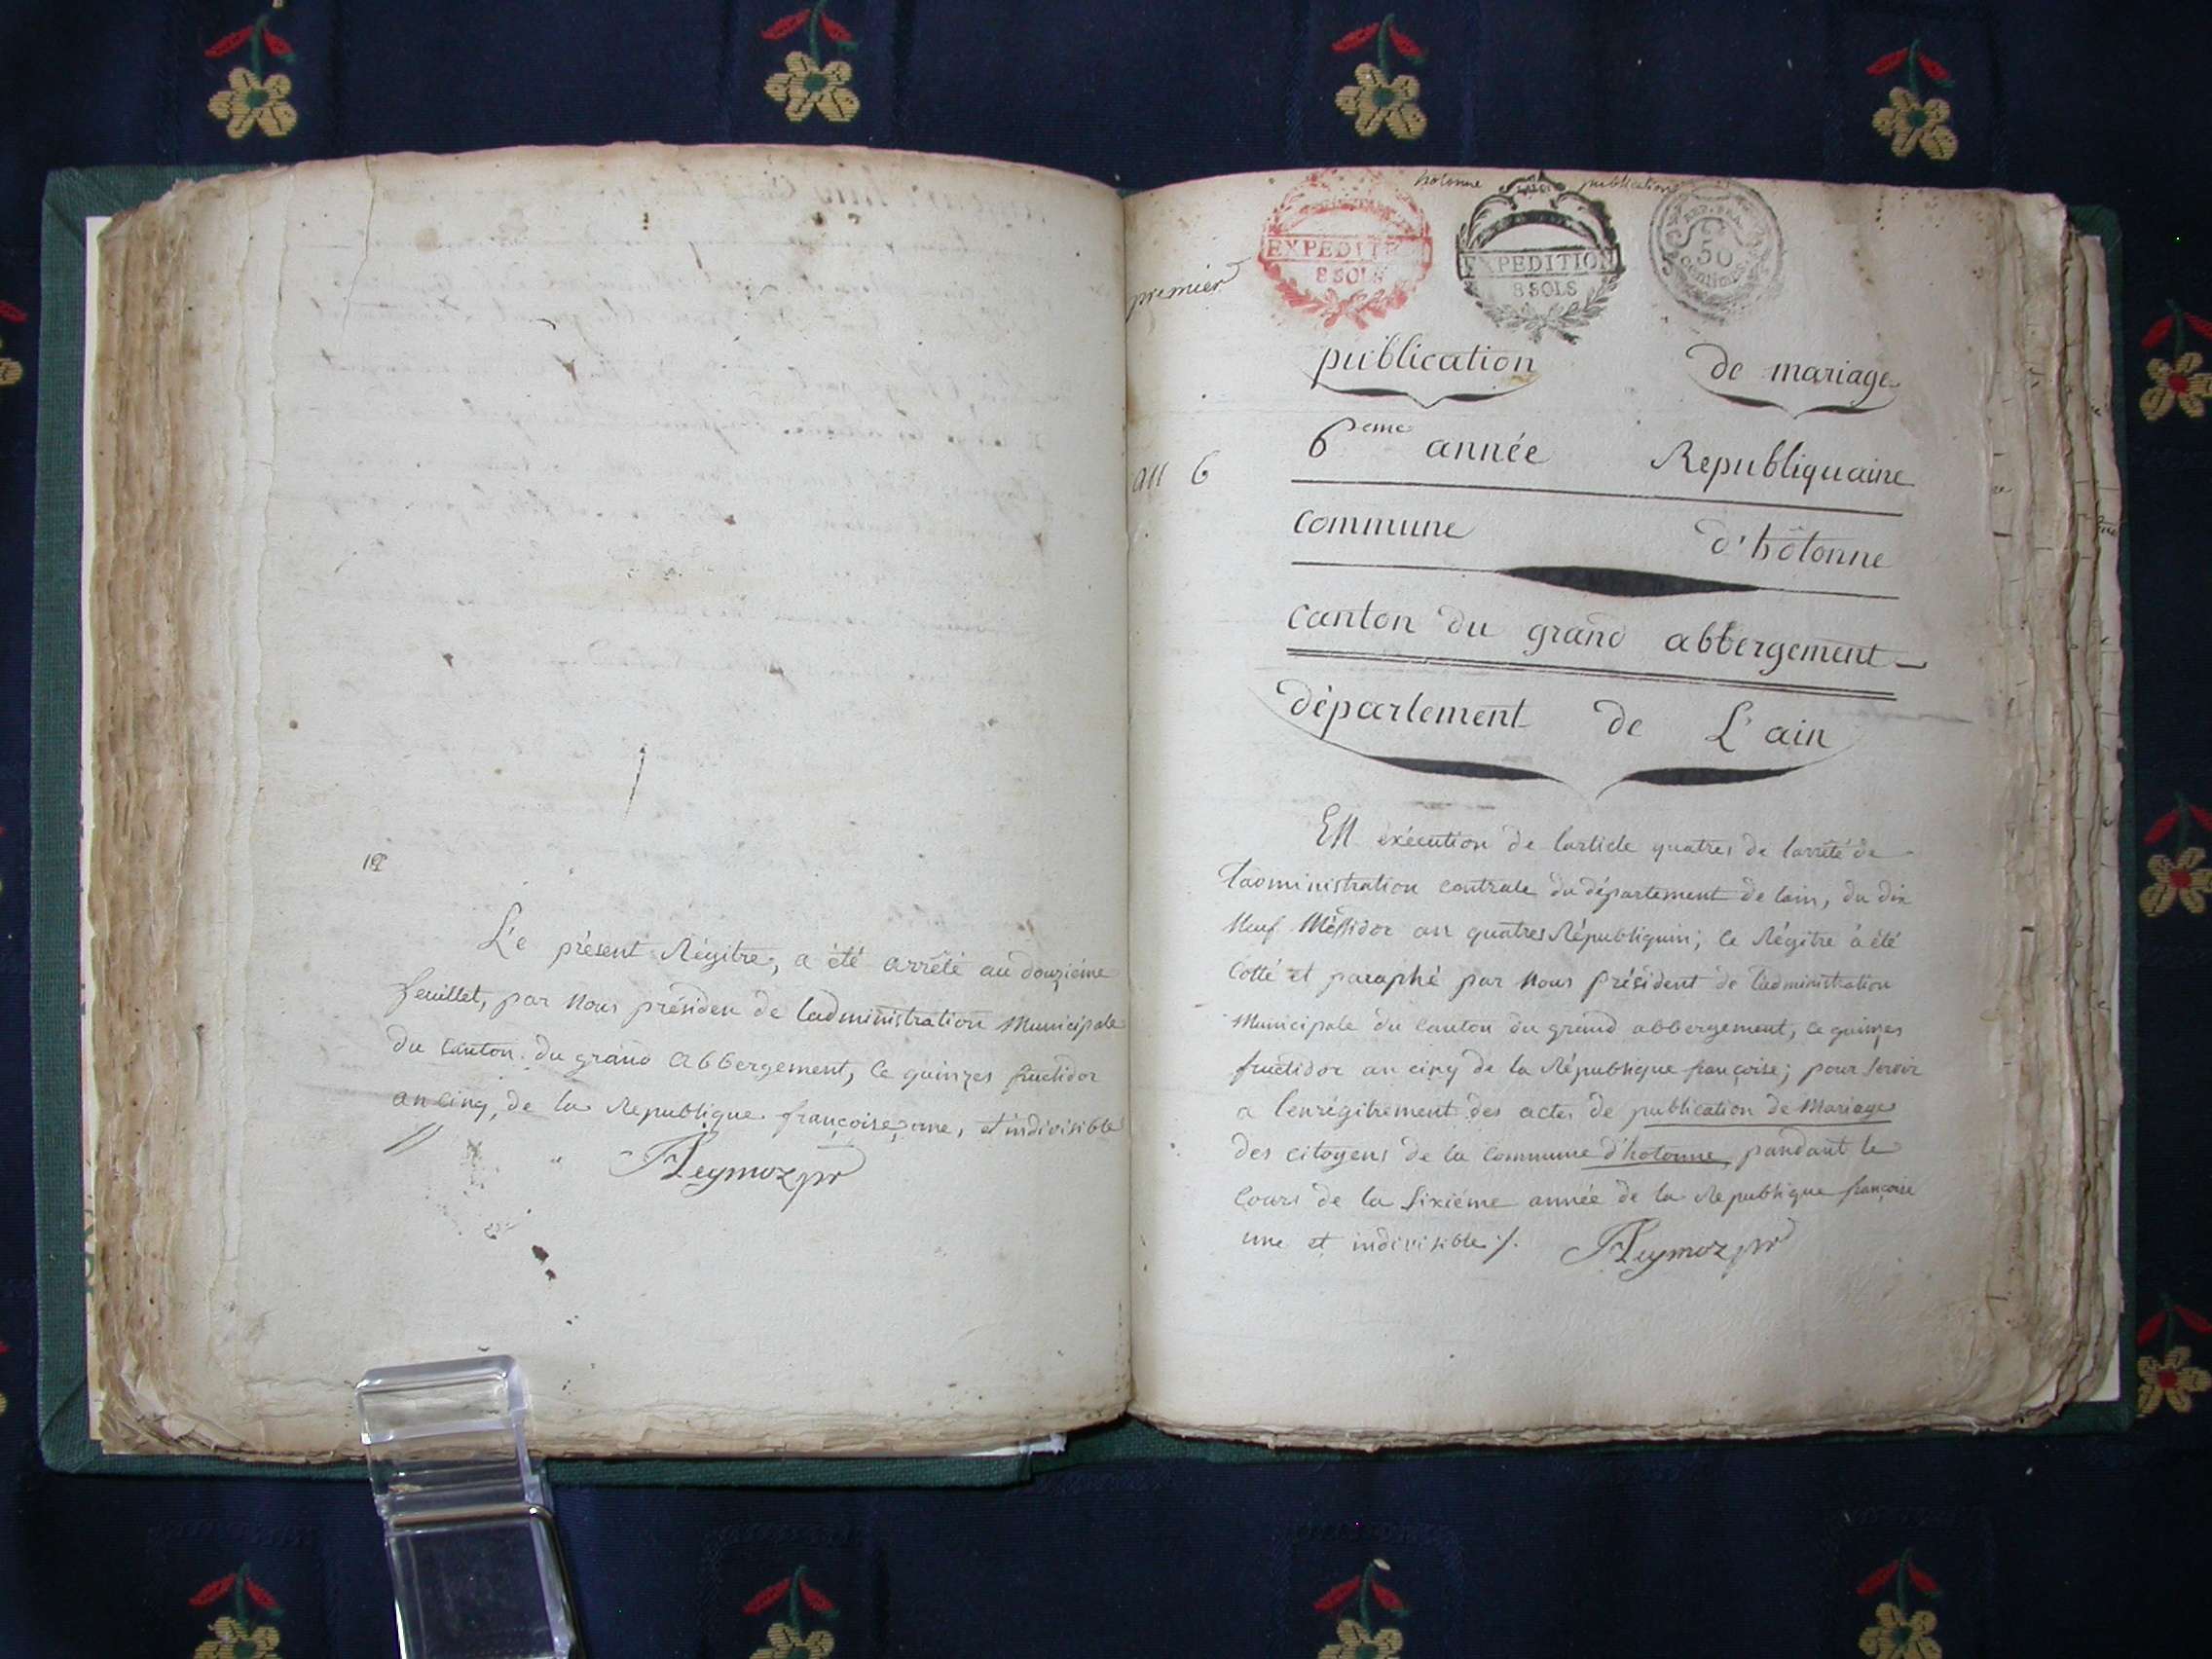 Le présent Régitre, a été arrêté au douziéme
feuillet, par Nous présiden de ladministration Municipale
du Canton du grand Abbergement, le quinzes fructidor
an cinq, de la Republique françoise, une, et indivisible
hotonne publication
EXPEDIT
8 SOLS
EXPEDITION
8 SOLS
REP. FRA.
50
centimes
premier
publication de mariage
6eme année Republiquaine
an 6
commune d'hôtonne
canton du grand abbergement
département de L'ain
En exécution de larticle quatres de larrêté de
Ladministration centrale du département de lain, du dix
Neuf Messidor an quatres Républiquin; le Régitre a été
Cotté et paraphé par Nous Président de Ladministration
Municipale du Canton du grand abbergement, le quinzes
fructidor an cinq de la République françoise; pour servir
a lenrégitrement des actes de publication de Mariage
des citoyens de la Commune d'hotonne, pandant le
Cours de la Sixiéme année de la Republique françoise
une et indivisible ./.